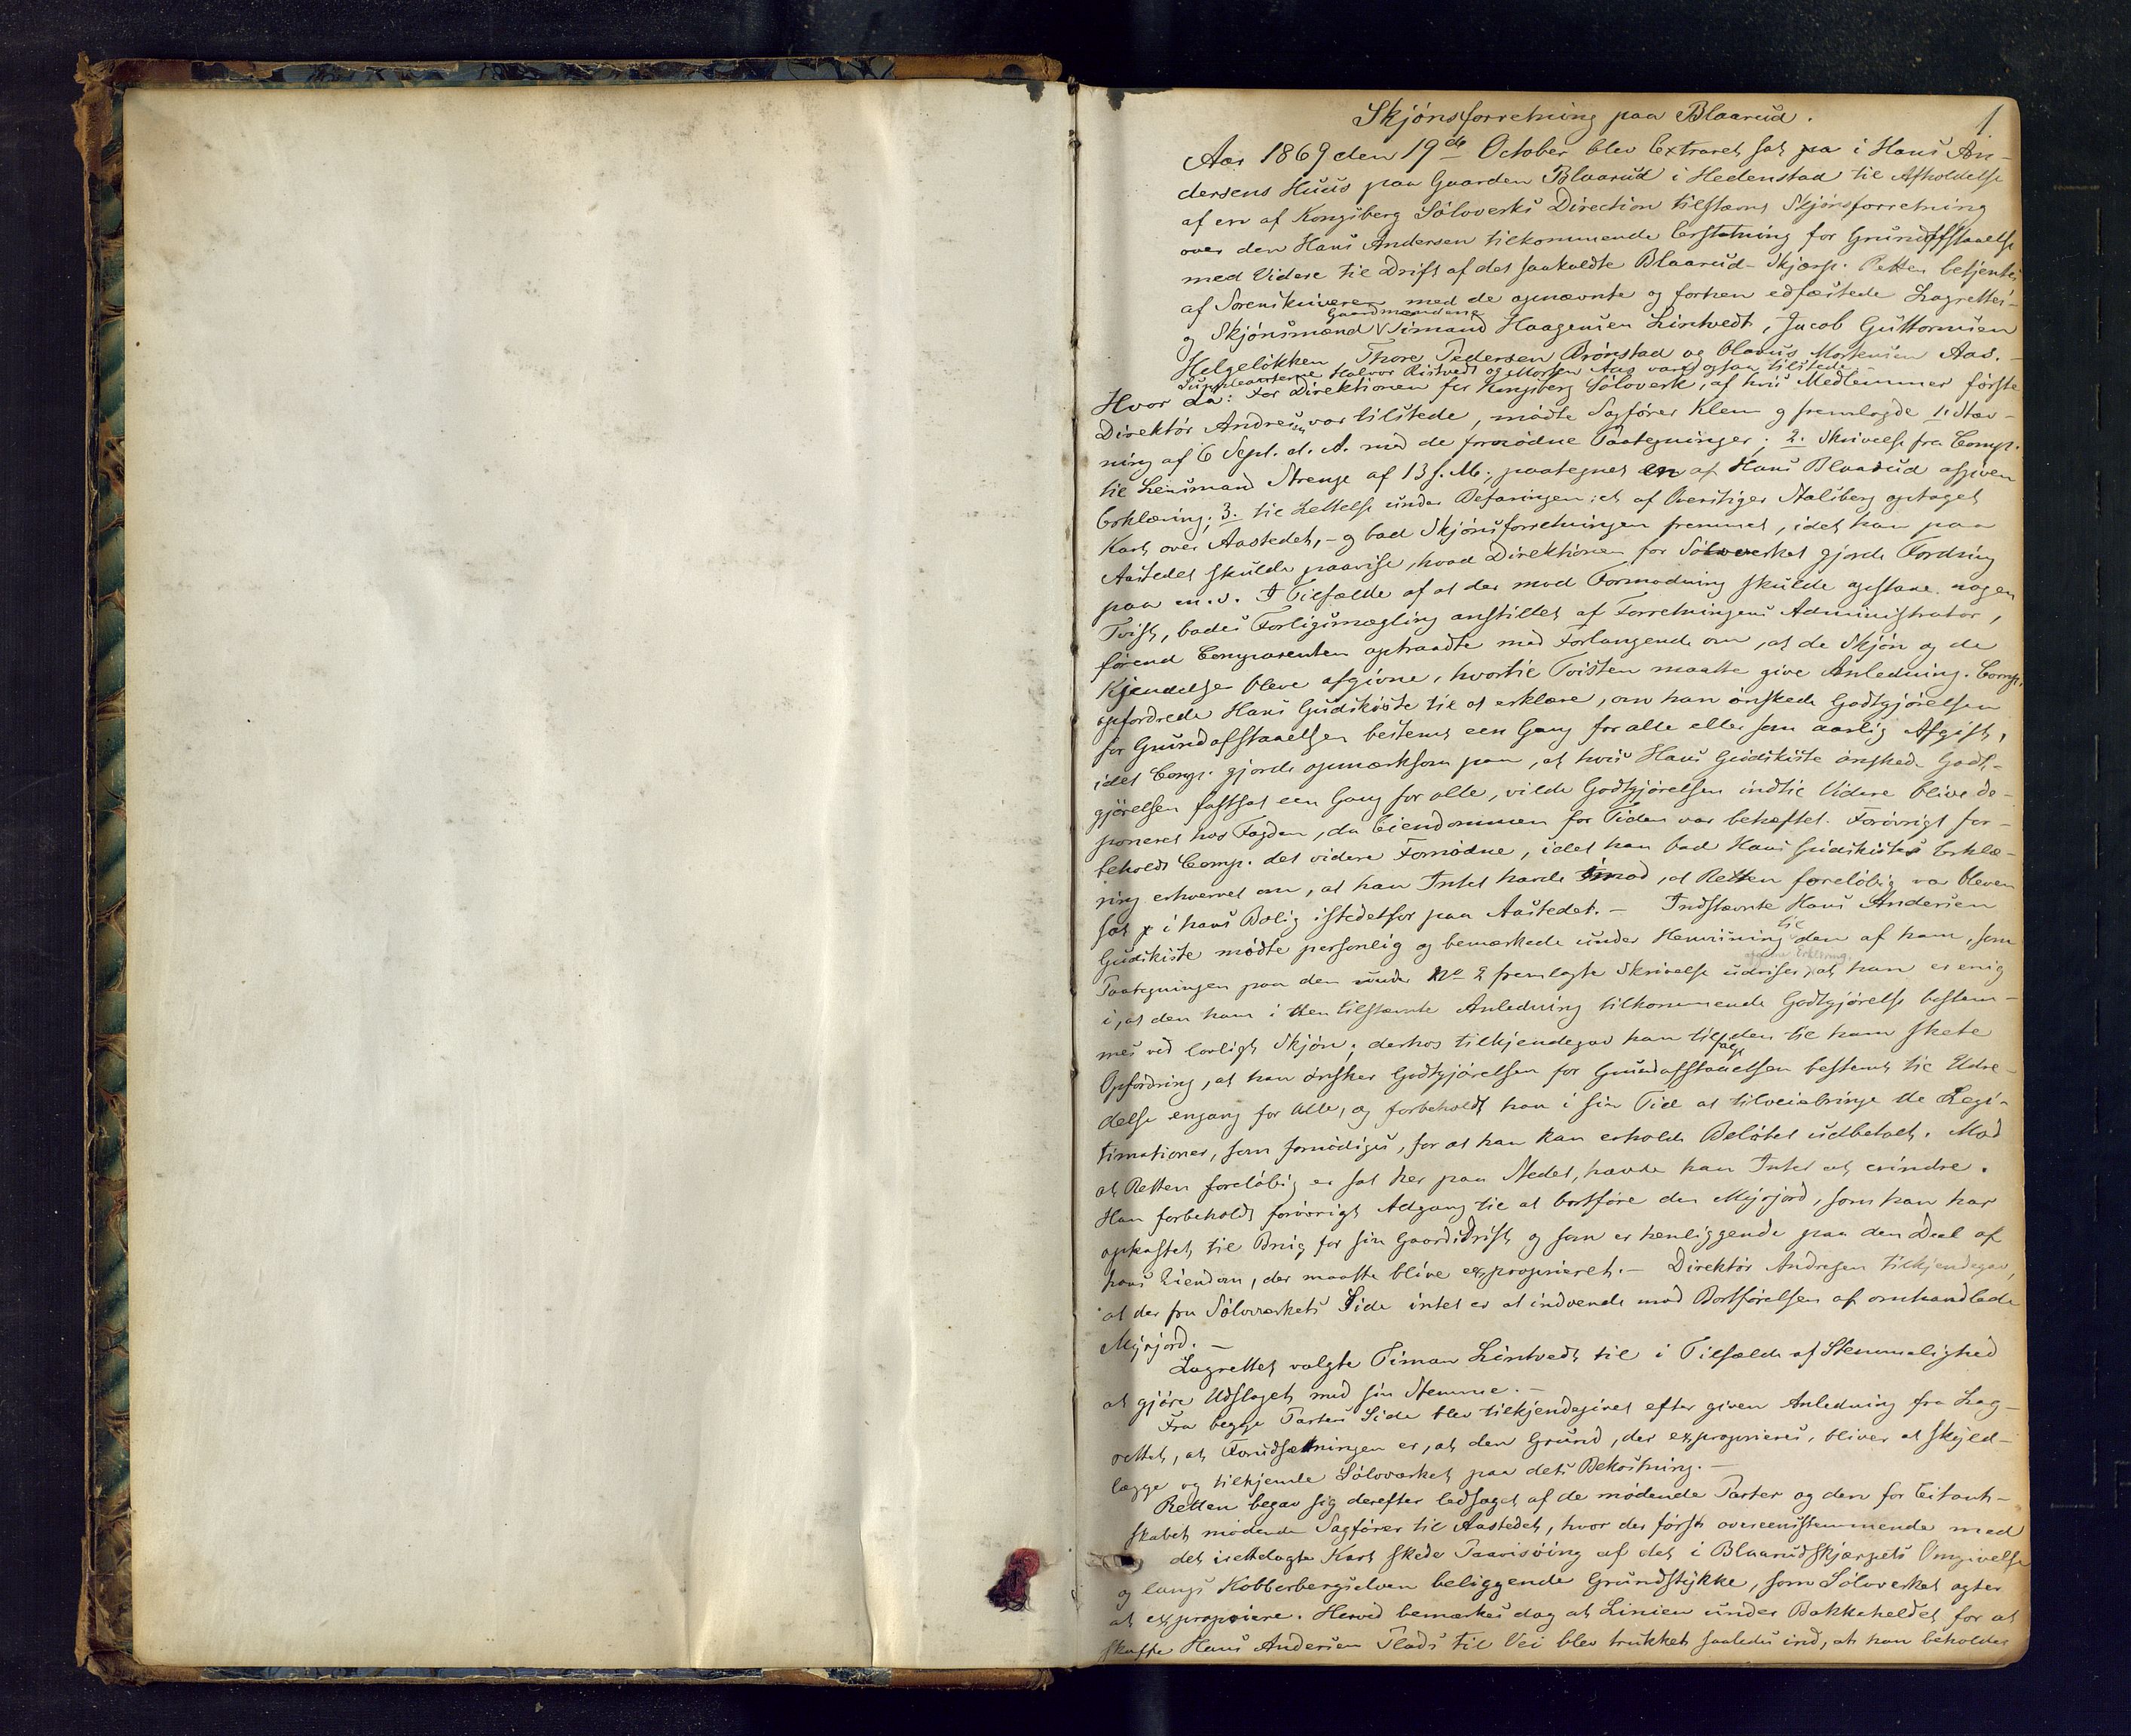 Skjönsforretning paa Blaarud.
1.
Aar 1869 den 19de October blev Extraret sat paa i Hans An-
dersens Huus paa Gaarden Blaarud i Hedenstad til Afholdelse
af en af Kongsberg Sölvverks Direction tilstævnt Skjönsforretning
over den Hans Andersen tilkommende Erstatning for Grundafstaaelse
med Videre til Drift af det saakaldte Blaarud-Skjærp. Retten betjentes
af Sorenskriveren med de opnævnte og forhen edfæstede Lagrettes-
og Skjönsmænd Gaardmændene Timand Haagensen Lintvedt, Jacob Guttormsen
Helgelökken, Thore Pedersen Brönstad og Olavus Mortensen Aas. -
Suppleanterne Halvor Ristvedt og Morten Aas vare ogsaa tilstede. -
Hvor da: For Direktionen for Kongsberg Sölvverk, af hvis Medlemmer förste
Direktör Andresen var tilstede, mödte Sagförer Klem og fremlagde 1. Stæv-
ning af 6 Sept. d. A. med de fornödne Paategninger; 2. Skrivelse fra Comp.
til Lensmand Strenge af 13 s. M., paategnet en af Hans Blaarud afgiven
Erklæring; 3. til Lettelse under Befaringen et af Overstiger Stalsberg optaget
Kart over Aastedet, - og bad Skjönsforretningen fremmet, idet han paa
Aastedet skulde paavise, hvad Direktionen for Sölvverket gjorde Fordring
paa m. v. I Tilfælde af at der mod Formodning skulde opstaae nogen
Tvist, bades Forligsmægling anstillet af Forretningens Administrator,
förend Comparenten optraadte med Forlangende om, at de Skjön og de
Kjendelser bleve afgivne, hvortil Tvisten maatte give Anledning. Comp.
opfordrede Hans Gudskiste til at erklære, om han önskede Godtgjörelsen
for Grundafstaaelsen bestemt een Gang for alle eller som aarlig Afgift,
idet Comp. gjorde opmærksom paa, at hvis Hans Gudskiste önskede Godt-
gjörelsen fastsat een Gang for alle, vilde Godtgjörelsen indtil Videre blive de-
poneret hos Fogden, da Eiendommen for Tiden var behæftet. Forövrigt for-
beholdt Comp. det videre Fornödne, idet han bad Hans Gudskistes Erklæ-
ring erhvervet om, at han Intet havde imod, at Retten foreløbig var bleven
sat i hans Bolig istedetfor paa Aastedet. - Indstævnte Hans Andersen
Gudskiste mödte personlig og bemærkede under Henvisning til den af ham, som
Paategningen paa den under No 2 fremlagte Skrivelse udviser, afgivne Erklæring, at han er enig
i, at den ham i den tilstævnte Anledning tilkommende Godtgjörelse bestem-
mes ved lovligt Skjön; derhos tilkjendegav han tilfölge den til ham skete
Opfordring, at han önsker Godtgjörelsen for Grundafstaaelsen bestemt til Udre-
delse engang for Alle, og forbeholdt han i sin Tid at tilveiebringe de Legi-
timationer, som fornödiges, for at han kan erholde Belöbet udbetalt. Mod
at Retten forelöbig er sat her paa Stedet, havde han Intet at erindre.
Han forbeholdt forövrigt Adgang til at bortföre den Myrjord, som han har
opkastet til Brug for sin Gaardsdrift og som er henliggende paa den Deel af
hans Eiendom, der maatte blive expropieret. - Direktör Andresen tilkjendegav,
at der fra Sölvværkets Side intet er at indvende mod Bortförelsen af omhandlede
Myrjord. -
Lagrettet valgte Timan Lintvedt til i Tilfælde af Stemmelighed
at gjöre Udslaget med sin Stemme. -
Fra begge Parters Side blev tilkjendegivet efter given Anledning fra Lag-
rettet, at Forudsætningen er, at den Grund, der exproprieres, bliver at skyld-
lægge og tilhjemle Sölvværket paa dets Bekostning. -
Retten begav sig derefter ledsaget af de mödende Parter og den for Citant-
skabet mödende Sagförer til Aastedet, hvor der först overeensstemmende med
det irettelagte Kart skede Paavisning af det i Blaarudskjærpets Omgivelse
og langs Kobberbergselven beliggende Grundstykke, som Sölvverket agter
at expropiere. Herved bemærkes dog at Linien under Bakkeheldet for at
skaffe Hans Andersen Plads til Vei blev trukket saaledes ind, at han beholder